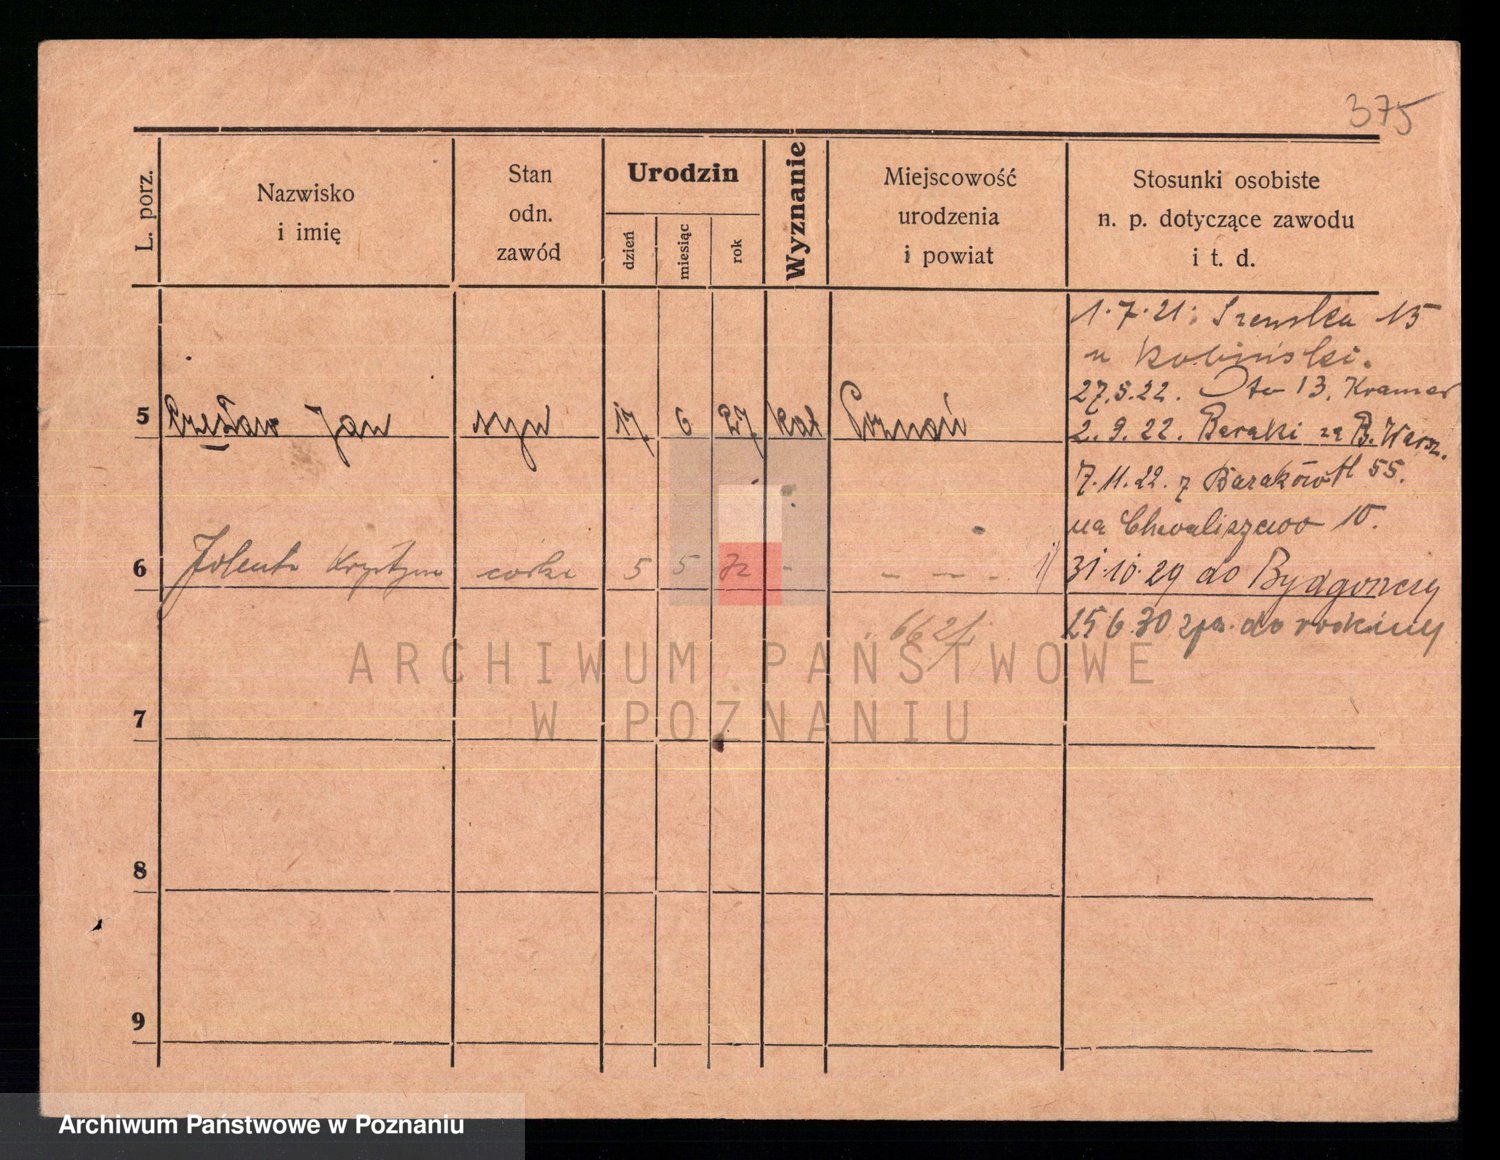 375
L. porz.
Nazwisko
i imię
Stan
odn.
zawód
Urodzin
dzień
miesiąc
rok
Wyznanie
Miejscowość
urodzenia
i powiat
Stosunki osobiste
n. p. dotyczące zawodu
i t. d.
1.7.21. 15
u
27.5.22. 13. Kramer
5 Czesław Jan syn 17 6 27 kat Poznań
2.9.22. Baraki za B. Warsz.
7.11.22. z Baraków 55.
na Chwaliszewo 10.
6 Jolenta Krystyna córka 5 5 - - - - 1/
31.10.29 do Bydgoszczy
15 6.30 do rodziny
7
8
9
ARCHIWUM PAŃSTWOWE
W POZNANIU
Archiwum Państwowe w Poznaniu